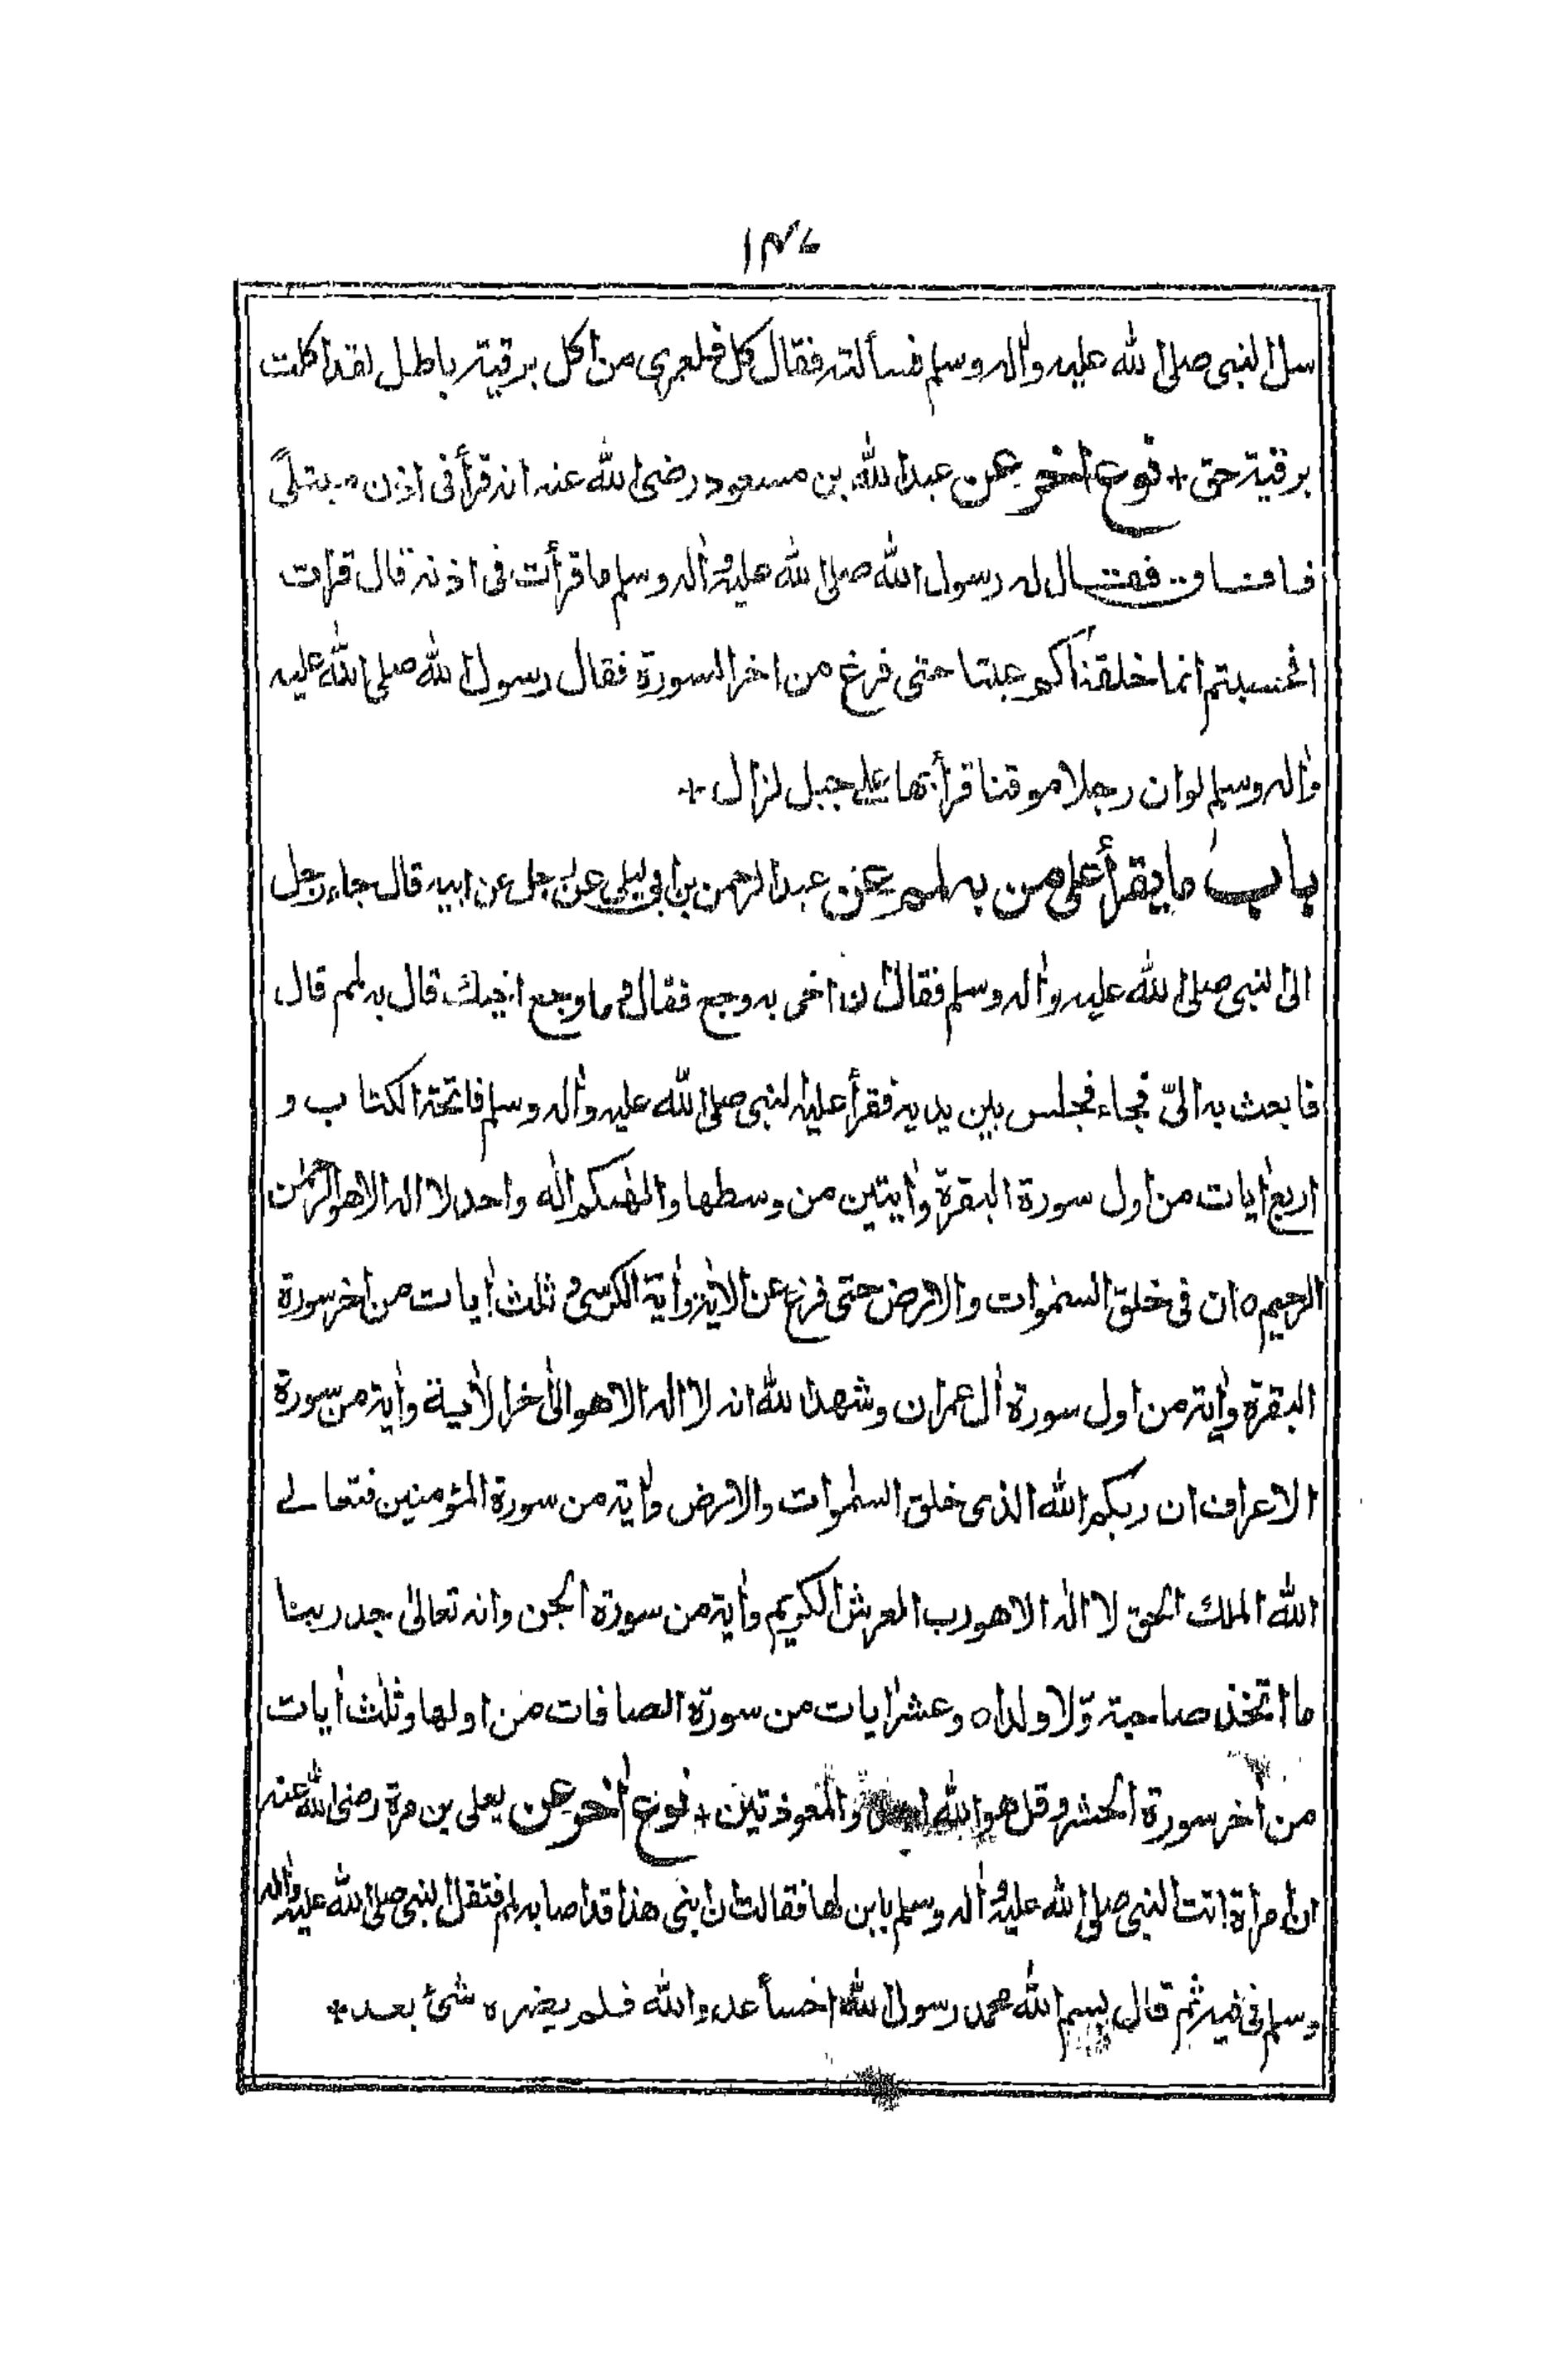 ۱۴۶
سل النبى صلى الله عليه واٰله وسلم فسألته فقال كل فلعمرى من اكل برقية باطل لقد اكلت
برقية حق + نوع اٰخر عن عبد الله بن مسعود رضى الله عنه انه قرأ فى اذن مبتلًى
فافاق فقال له رسول الله صلى الله عليه واٰله وسلم ما قرأت فى اذنه قال قرات
افحسبتم انما خلقناكم عبثا حتى فرغ من اخر السورة فقال رسول الله صلى الله عليه
واٰله وسلم لو ان رجلا موقنا قرأ بها على جبل لزال +
باب ما يقرأ على من به لمم عن عبد الرحمن بن ابى ليلى عن رجل عن ابيه قال جاء رجل
الى النبى صلى الله عليه واٰله وسلم فقال ان اخى به وجع فقال و ما وجع اخيك قال به لمم قال
فابعث به الىّ فجاء فجلس بين يديه فقرأ عليه النبى صلى الله عليه واٰله وسلم فاتحة الكتاب و
اربع اٰيات من اول سورة البقرة واٰيتين من وسطها والٰهكم اله واحد لا اله الا هو الرحمٰن
الرحيم ه ان فى خلق السمٰوات والارض حتى فرغ عن الاٰية واٰية الكرسى و ثلث اٰيات من اٰخر سورة
البقرة واٰية من اول سورة اٰل عمران وشهد الله انه لا اله الا هو الى اٰخر الاٰية واٰية من سورة
الاعراف ان ربكم الله الذى خلق السمٰوات والارض واٰية من سورة المؤمنين فتعالى
الله الملك الحق لا اله الا هو رب العرش الكريم واٰية من سورة الجن وانه تعالىٰ جد ربنا
ما اتخذ صاحبة وّلا ولدا ه وعشر اٰيات من سورة الصافات من اولها وثلٰث اٰيات
من اٰخر سورة الحشر وقل هو الله احد والمعوذتين + نوع اٰخر عن يعلى بن مرة رضى الله عنه
ان امراة اتت النبى صلى الله عليه واٰله وسلم بابن لها فقالت ان ابنى هذا قد اصابه لمم فتفل النبى صلى الله عليه واٰله
وسلم فى فيه ثم قال بسم الله محمد رسول الله اخسأ عدو الله فلم يضره شئ بعد +